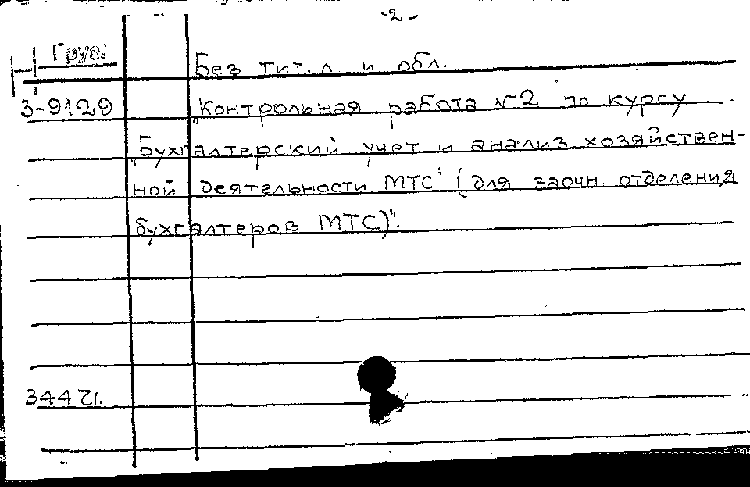 -2-
Груз.
Без тит. л. и обл.
3-9129
"Контрольная работа №2 по курсу
"Бухгалтерский учет и анализ хозяйствен-
ной деятельности МТС" (для заочн. отделения
бухгалтеров МТС)".